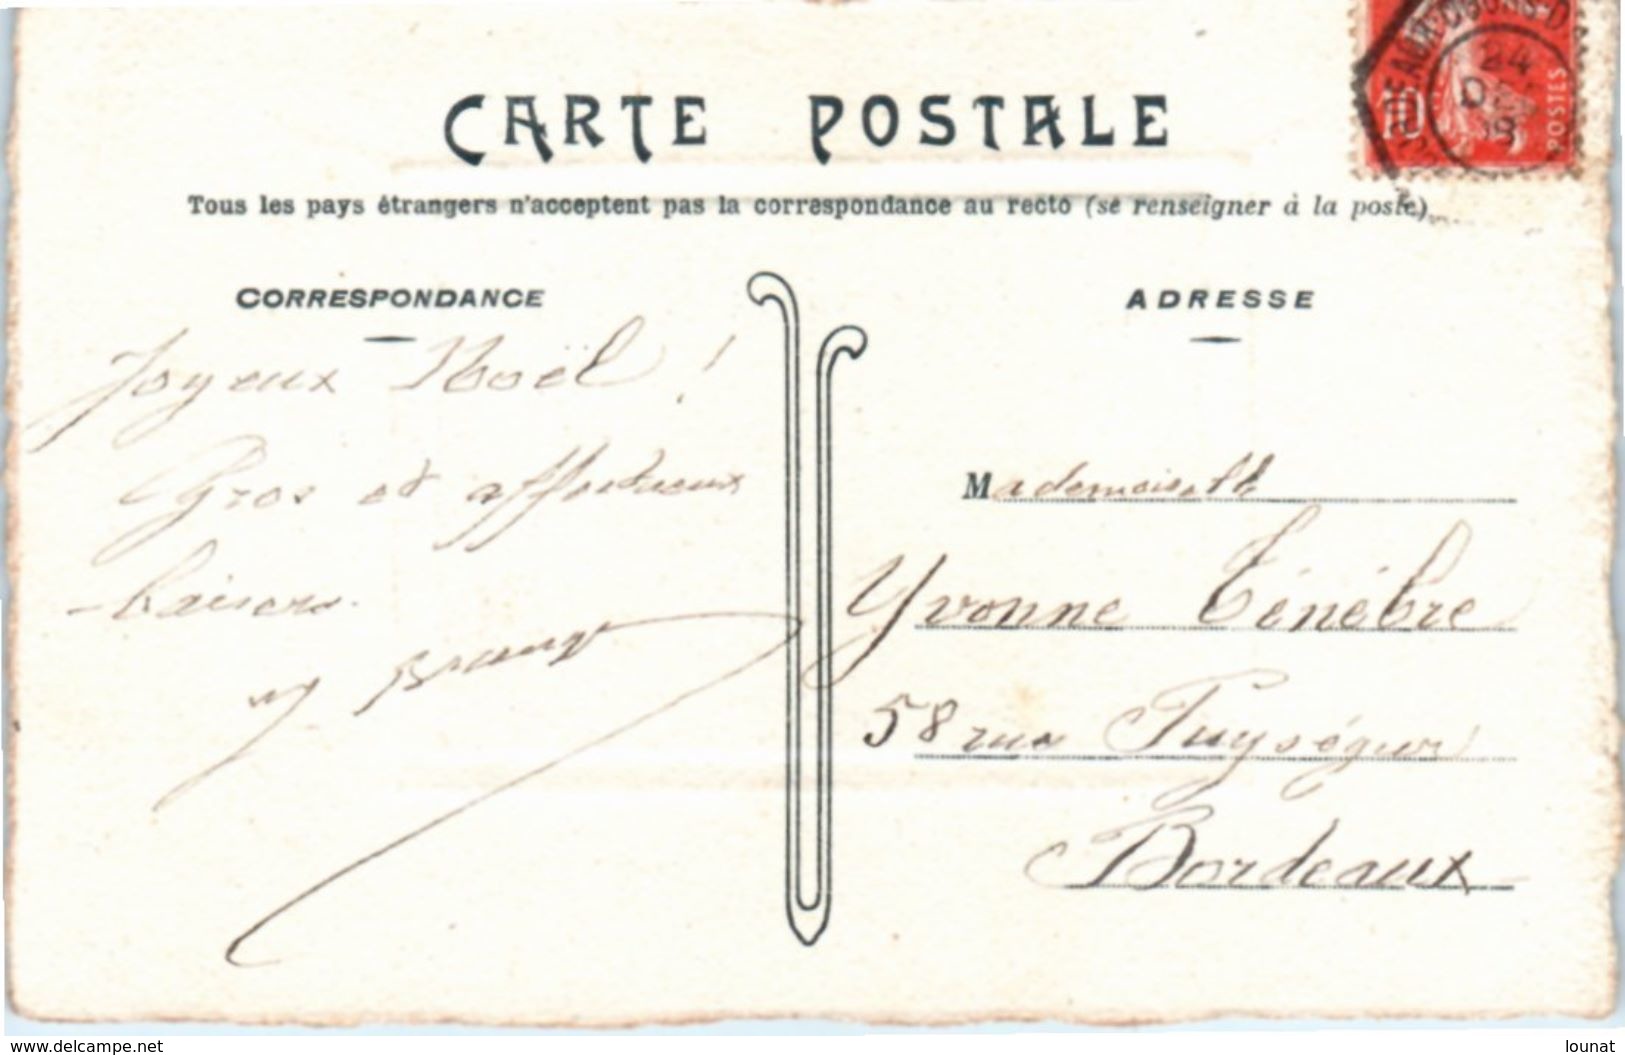 CARTE POSTALE
Tous les pays étrangers n'acceptent pas la correspondance au recto (se renseigner à la poste)
CORRESPONDANCE
Joyeux Noël !
Gros et affectueux
baisers.
ADRESSE
Mademoiselle
Yvonne Ténèbre
58 rue Puységur
Bordeaux
10
POSTES
24
www.delcampe.net
lounat